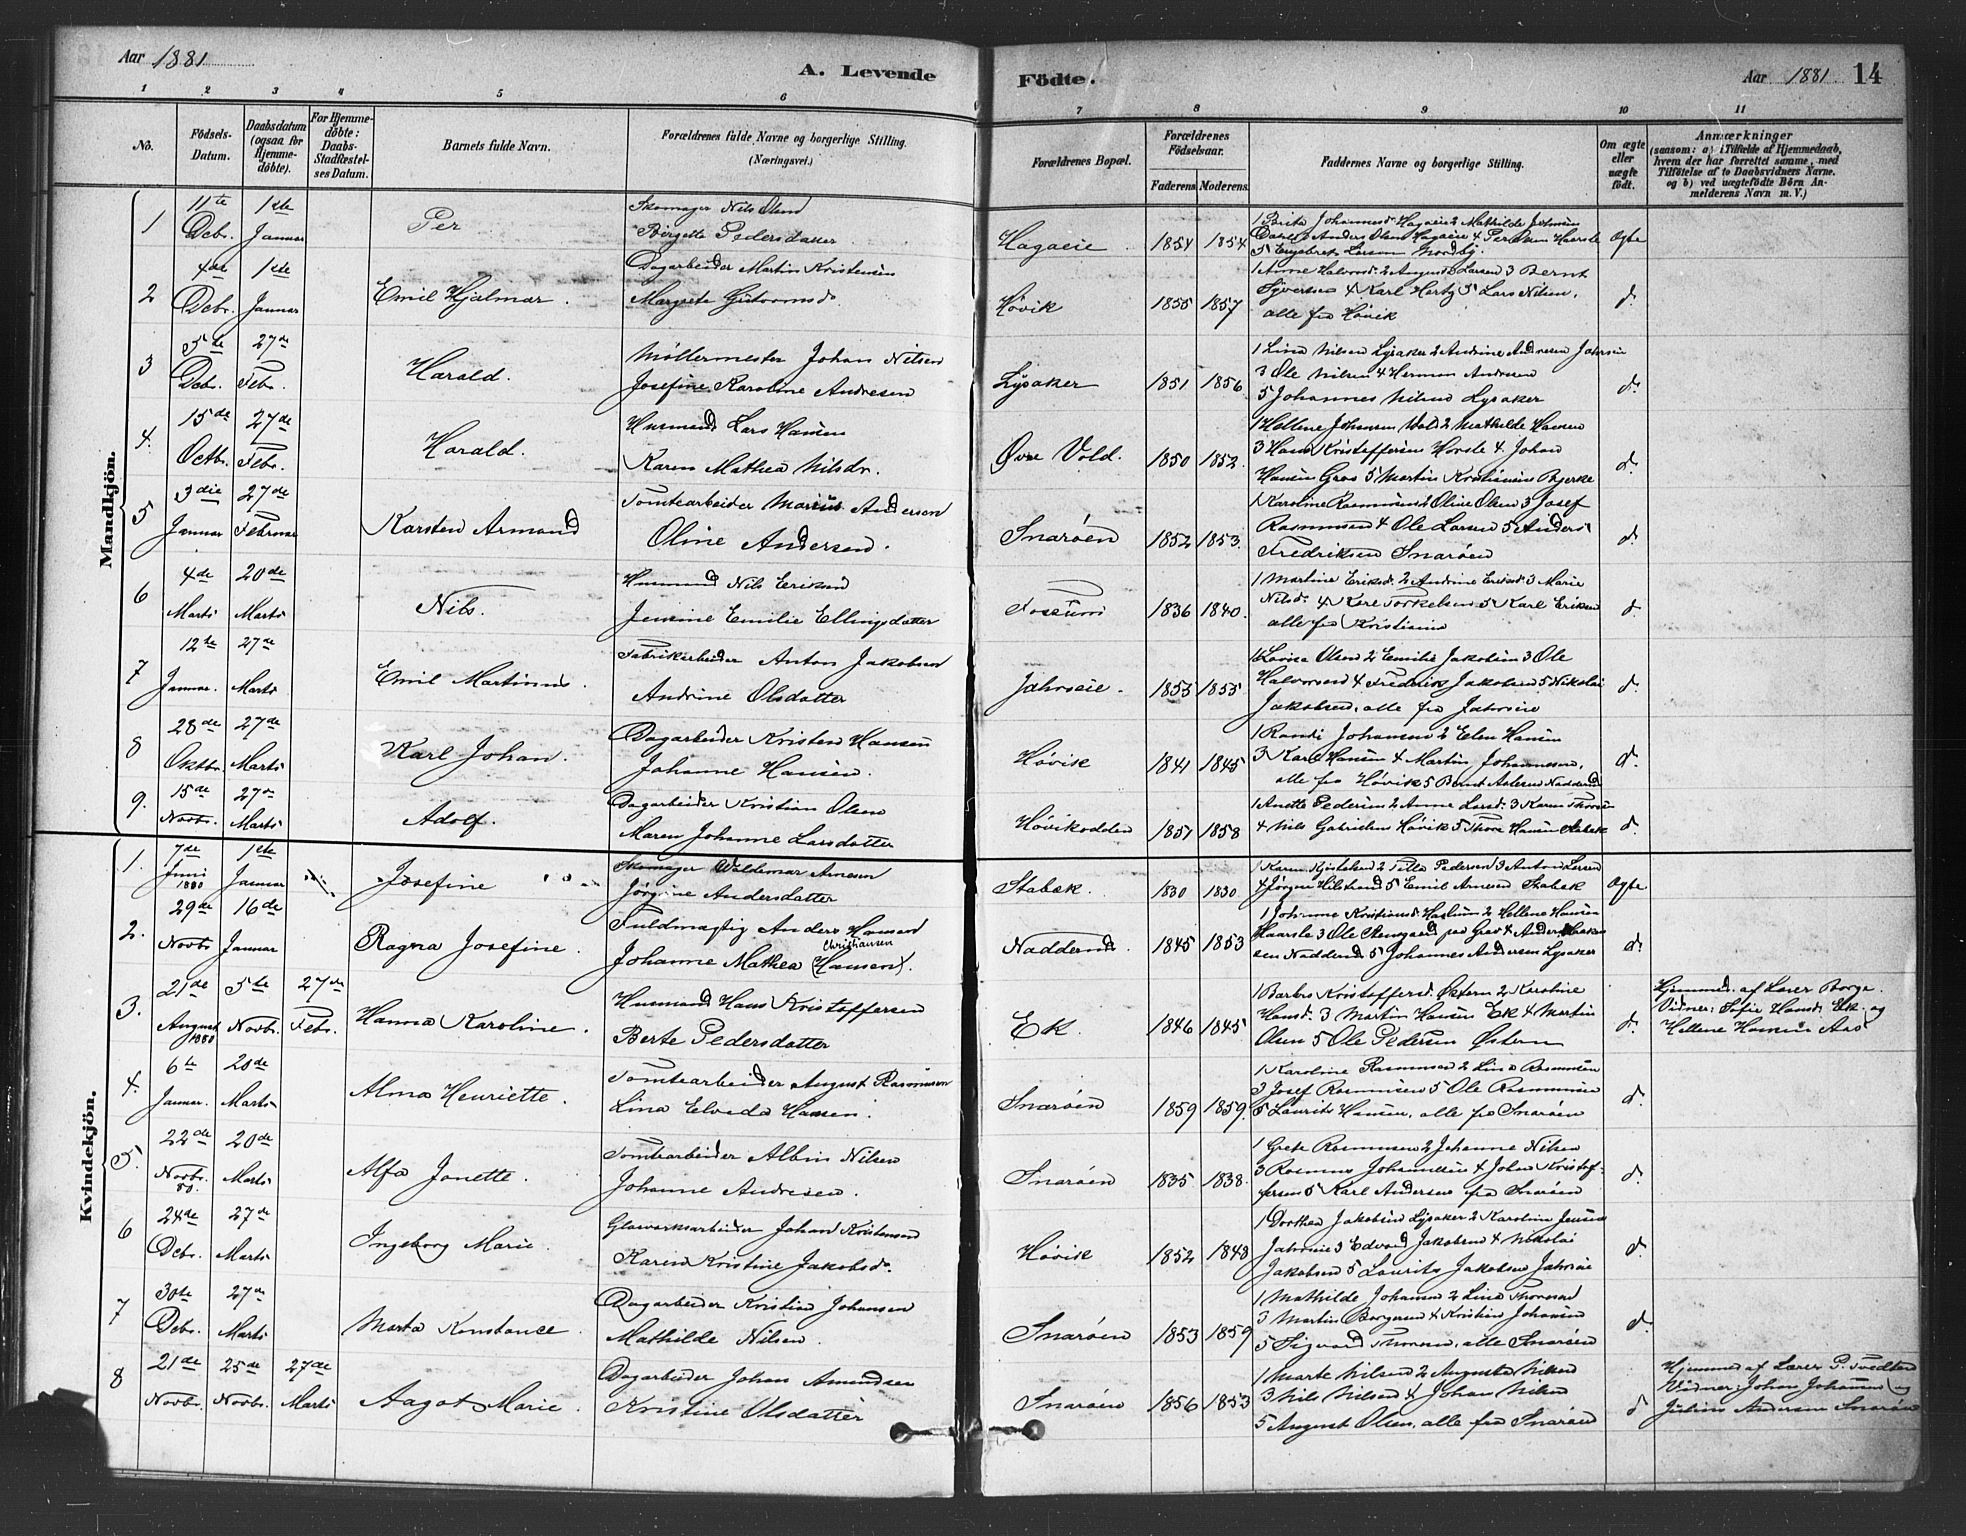 Aar 1881
A. Levende
Födte.
Aar 1881. 14
1 2 3 4 5 6 7 8 9 10 11
No.
Födsels-Datum.
Daabsdatum (ogsaa for Hjemmedöbte).
For Hjemmedöbte: Daabs-Stadfæstelses Datum.
Barnets fulde Navn.
Forældrenes fulde Navne og borgerlige Stilling. (Næringsvei.)
Forældrenes Bopæl.
Forældrenes Födselsaar.
Faderens. Moderens.
Faddernes Navne og borgerlige Stilling.
Om ægte eller uægte födt.
Anmærkninger
(saasom: a) i Tilfælde af Hjemmedaab,
hvem der har forrettet samme, med
Tilföielse af to Daabsvidners Navne.
og b) ved uægtefödte Börn Anmelderens Navn m. V.)
Mandkjön.
1 11te Debr. 1ste Januar Per
Skomager Nils Olsen
Birgette Pedersdatter
Hagaeie 1854 1854
Ogte
2 4de Debr. 1ste Januar Emil Hjalmar.
Dagarbeider Martin Kristensen
Margrete Guttormsd.
Høvik 1855 1857
1 Anne Halvorsd. 2 Augusta Larsen 3 Bernt
Syvertsen 4 Karl Hertz 5 Lars Nilsen,
alle fra Høvik
d.
3 5te Debr. 27de Febr. Harald.
Møllermester Johan Nilsen
Josefine Karoline Andresen
Lysaker 1851 1856
3 Ole Nilsen 4 Herman Andresen
5 Johannes Nilsen Lysaker
d.
4. 15de Octbr. 27de Febr. Harald.
Husmand Lars Hansen
Karen Mathea Nilsdr.
Øvre Vold. 1850 1852.
1 Hellene Johansen Vold 2 Mathilde Hansen
3 Hans Kristoffersen Horsle 4 Johan
Hansen Grav 5 Martin Kristiansen Bjerke
d.
5 3die Januar 27de Februar Karsten Armand
Tomtearbeider Marius Andersen
Oline Andersen.
Snarøen 1852 1853.
1 Karoline Rasmussen 2 Oline Olsen 3 Josef
Rasmussen 4 Ole Larsen 5 Anders
Fredriksen Snarøen
d.
6 4de Marts 20de Marts Nils.
Husmand Nils Eriksen
Jensine Emilie Ellingsdatter
Fossum 1836 1840.
1 Martine Eriksd. 2 Andrine Eriksd. 3 Marie
Nilsd. 4 Kare Torkelsen 5 Karl Eriksen
alle fra Kristiania
d.
7 12te Januar. 27de Marts Emil Martinus.
Fabrikarbeider Anton Jakobsen
Andrine Olsdatter
Jahrseie. 1855 1855.
1 Lovise Olsen 2 Emilie Jakobsen 3 Ole
Halvorsen 4 Fredrik Jakobsen 5 Nikolai
Jakobsen, alle fra Jahrseie
d.
8 28de Oktbr. 27de Marts Karl Johan.
Dagarbeider Kristen Hansen
Johanne Hansen.
Høvik 1841 1845
1 Randi Johansen 2 Elen Hansen
3 Karl Hansen 4 Martin Johannesen,
d.
9. 15de Novbr. 27de Marts Adolf.
Dagarbeider Kristian Olsen
Maren Johanne Larsdatter
Høviksdalen 1851 1858
1 Anette Pedersen 2 Anne Larsd. 3 Karen Thoresen
4 Nils Gabrielsen Høvik 5 Thore Hansen Stabæk
d.
Kvindekjön.
1. 7de Juni 1880 1ste Januar Josefine
Skomager Valdemar Arnesen
Jørgine Andersdatter
Stabæk. 1830 1830
Ogte
2. 29de Novbr 16de Januar Ragna Josefine.
Fuldmægtig Anders Hansen
Christiansen
Johanne Mathea (Hansen).
Nadderud. 1845 1853
d.
3. 21de August 1880 5te Novbr. 27de Febr. Hanna Karoline.
Husmand Hans Kristoffersen
Berte Pedersdatter
Ek. 1846 1845
1 Barbro Kristoffersd. Østern 2 Karoline
Hansd. 3 Martin Hansen Ek 4 Martin
Olsen 5 Ole Pedersen Østern
d.
Hjemmed. af Lærer Borge.
Vidner: Sofie Hansd. Ek. og
Hellene Hansen Aas
4. 6te Januar. 20de Marts Alma Henriette.
Tomtearbeider August Rasmussen
Lina Elvida Hansen.
Snarøen 1859 1859.
1 Karoline Rasmussen 2 Lina Rasmussen
3 Josef Rasmussen 5 Ole Rasmussen
5 Laurits Hansen, alle fra Snarøen
d.
5. 22de Novbr. 80. 20de Marts Alfa Jonette.
Tomtearbeider Albin Nilsen
Johanne Andresen.
Snarøen 1835 1838.
1 Grete Rasmussen 2 Johanne Nilsen
3 Rasmus Johannesen 4 Johan Kristoffersen
5 Karl Andersen fra Snarøen
d.
6 24de Debr. 27de Marts Ingeborg Marie.
Glasværksarbeider Johan Kristensen
Karen Kristine Jakobsd.
Høvik 1852 1848
1 Dorthea Jakobsen Lysaker 2 Karoline Jensen
Jahrseie 3 Edvard Jakobsen 4 Nikolai
Jakobsen 5 Laurits Jakobsen Jahrseie
d.
7 30te Debr. 27de Marts Marta Konstance.
Dagarbeider Kristian Johansen
Mathilde Nilsen.
Snarøen 1853 1859
1 Mathilde Johansen 2 Lina Thoresen
3 Martin Borgersen 4 Kristian Johansen
5 Sigvard Thoresen, alle Snarøen
d.
8 21de Novbr. 25de Novbr. 27de Marts Aagot Marie.
Dagarbeider Johan Amundsen
Kristine Olsdatter
Snarøen 1856 1853
1 Marte Nilsen 2 Augusta Nilsen
3 Nils Nilsen 4 Johan Nilsen
5 August Olsen, alle fra Snarøen
d
Hjemmed. af Lærer P. Tvedten
Vidner: Johan Johansen og
Juline Andersen Snarøen